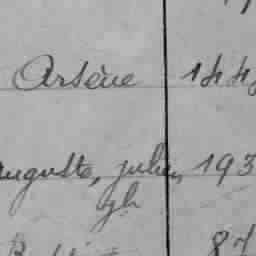 Arsène 144
auguste, julien, 193
gh
87